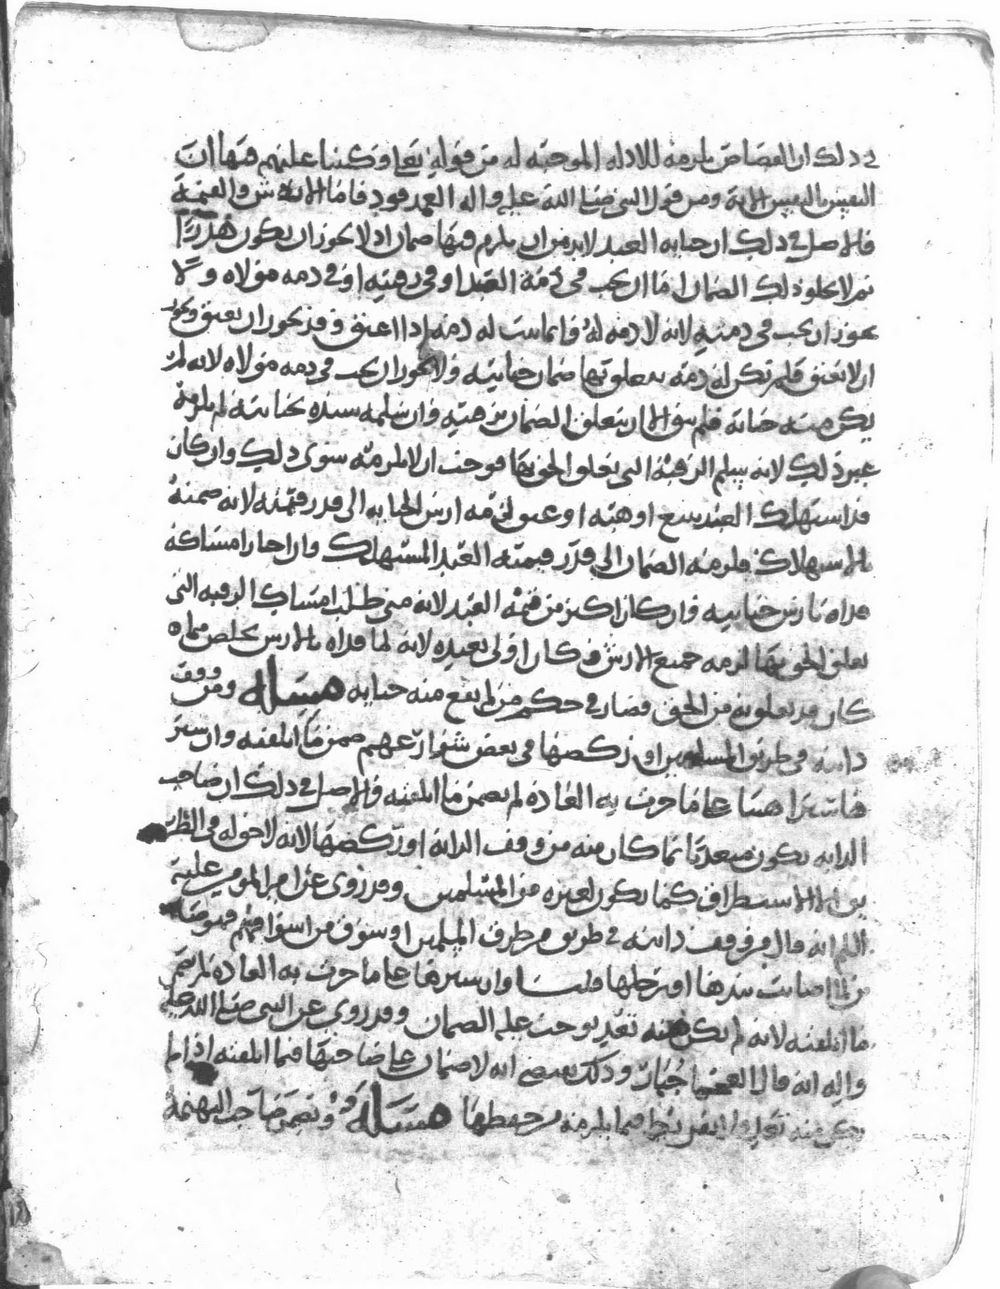 في ذلك ان القصاص يلزمه للادلة الموجبة له من قوله تعالى وكتبنا عليهم فيها ان
النفس بالنفس الاية ومن قول النبي صلى الله عليه واله العمد قود فاما الارش والقيمة
فالاصل في ذلك ان جناية العبد لابد من ان يلزم فيها ضمان اذ لا يجوز ان يكون هدرا
ثم لا يخلو ذلك الضمان اما ان يجب في ذمة العبد او في رقبته او في ذمة مولاه ولا
يجوز ان يجب في ذمته لانه لا ذمة له وانما يثبت له ذمة اذا اعتق وقد يجوز ان يعتق ويجوز
ان لا يعتق فلم تكن له ذمة يتعلق بها ضمان جنايته ولا يجوز ان يجب في ذمة مولاه لانه لم
يكن منه جناية فلم يبق الا ان يتعلق الضمان برقبته وان سلمه سيده بجنايته لم يلزمه
غير ذلك لانه يسلم الرقبة التي تعلق الحق بها فوجب ان لا يلزمه سوى ذلك وان كان
قد استهلك العبد ببيع او هبة او عتق لزمه ارش الجناية الى قدر قيمته لانه ضمنه
بالاستهلاك فلزمه الضمان الى قدر قيمة العبد المستهلك وان اختار امساكه
فداه بارش جنايته وان كان اكثر من قيمة العبد لانه متى طلب امساك الرقبة التي
تعلق الحق بها لزمه جميع الارش وكان اولى بعبده لانه لما فداه بالارش تخلص مما
كان قد تعلق به من الحق فصار في حكم من لم يقع منه جناية مسألة ومن وقف
دابته في طريق المسلمين او ركضها في بعض شوارعهم ضمن ما اتلفته وان سير
سيرا هينا على ما جرت به العادة لم يضمن ما اتلفته والاصل في ذلك ان صاحب
الدابة يكون متعديا بما كان منه من وقف الدابة او ركضها لانه لا حق له في الطريق
الا الاستطراق كما يكون لغيره من المسلمين وقد روي عن امير المومنين عليه
السلم انه قال من وقف دابته في طريق من طرق المسلمين او سوق من اسواقهم فهو ضامن
لما اصابت بيدها او برجلها قلنا وان سيرها على ما جرت به العادة لم يضمن
ما اتلفته لانه لم يكن منه تعد يوجب عليه الضمان وقد روي عن النبي صلى الله عليه
واله انه قال العجما جبار وذلك يقتضي انه لا ضمان على صاحبها فيما اتلفته اذا لم
يكن منه تعد ولا تفريط فيما يلزمه من حفظها مسألة ويضمن صاحب البهيمة